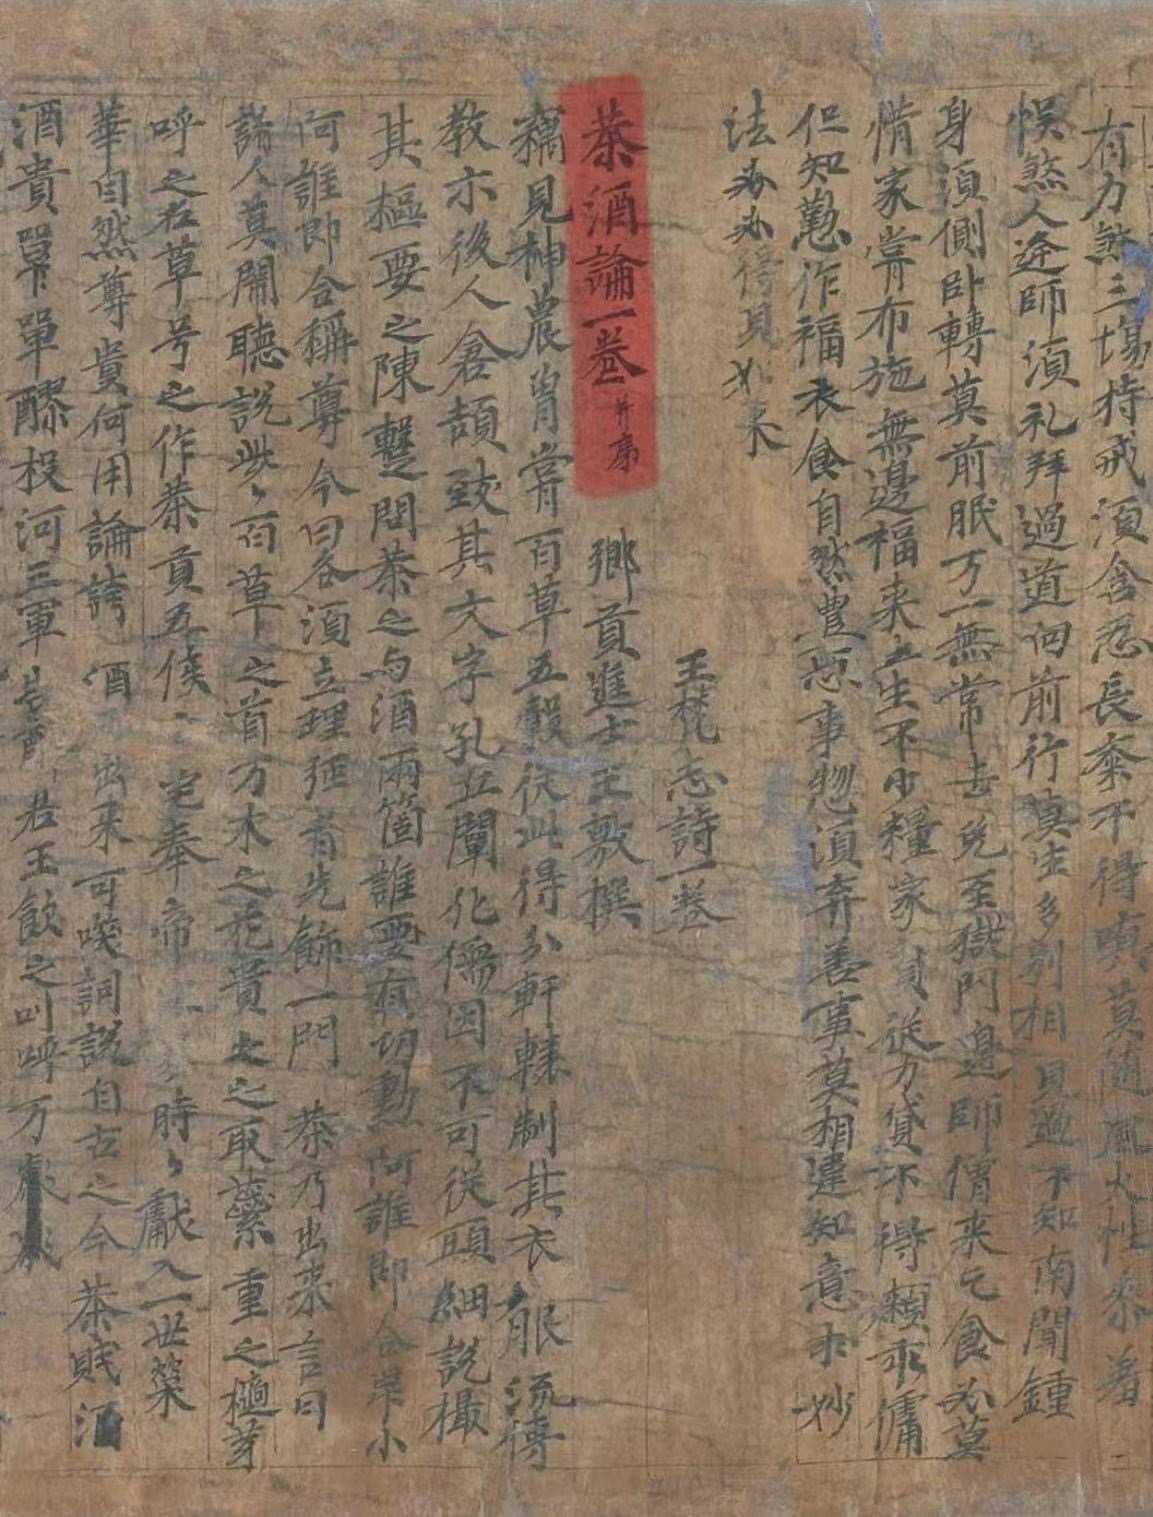 有力煞三場持戒須含忍長齋不得嗔莫隨風火性參着
悞煞人逢師須礼拜過道向前行莫生多別相見過不知南聞鍾
身須側臥轉莫前眠万一無常去免至獄門邊師僧来乞食必莫
惜家常布施無邊福来生不少糧家貧從力貸不得賴乖慵
但知懃作福衣食自然豊惡事惣須弃善事莫相違知意求妙
法必必得見如来
王梵志詩一卷
茶酒論一卷并序 鄉貢進士王敷撰
竊見神農曾甞百草五穀從此得分軒轅制其衣服流傳
教示後人倉頡致其文字孔丘闡化儒因不可従頭細説撮
其樞要之陳蹔問茶之与酒兩箇誰要有功勲阿誰即合卑小
阿誰即合稱尊今日各須立理強者先飾一門 茶乃出来言曰
諸人莫鬧聴説些々百草之首万木之花貴之取蘂重之擿芽
呼之名草号之作茶貢五侯宅奉帝 時々獻入一世榮
華自然尊貴何用論誇 酒 出来可咲詞説自古之今茶賎酒
貴單醪投河三軍 君王飲之叫呼万歳